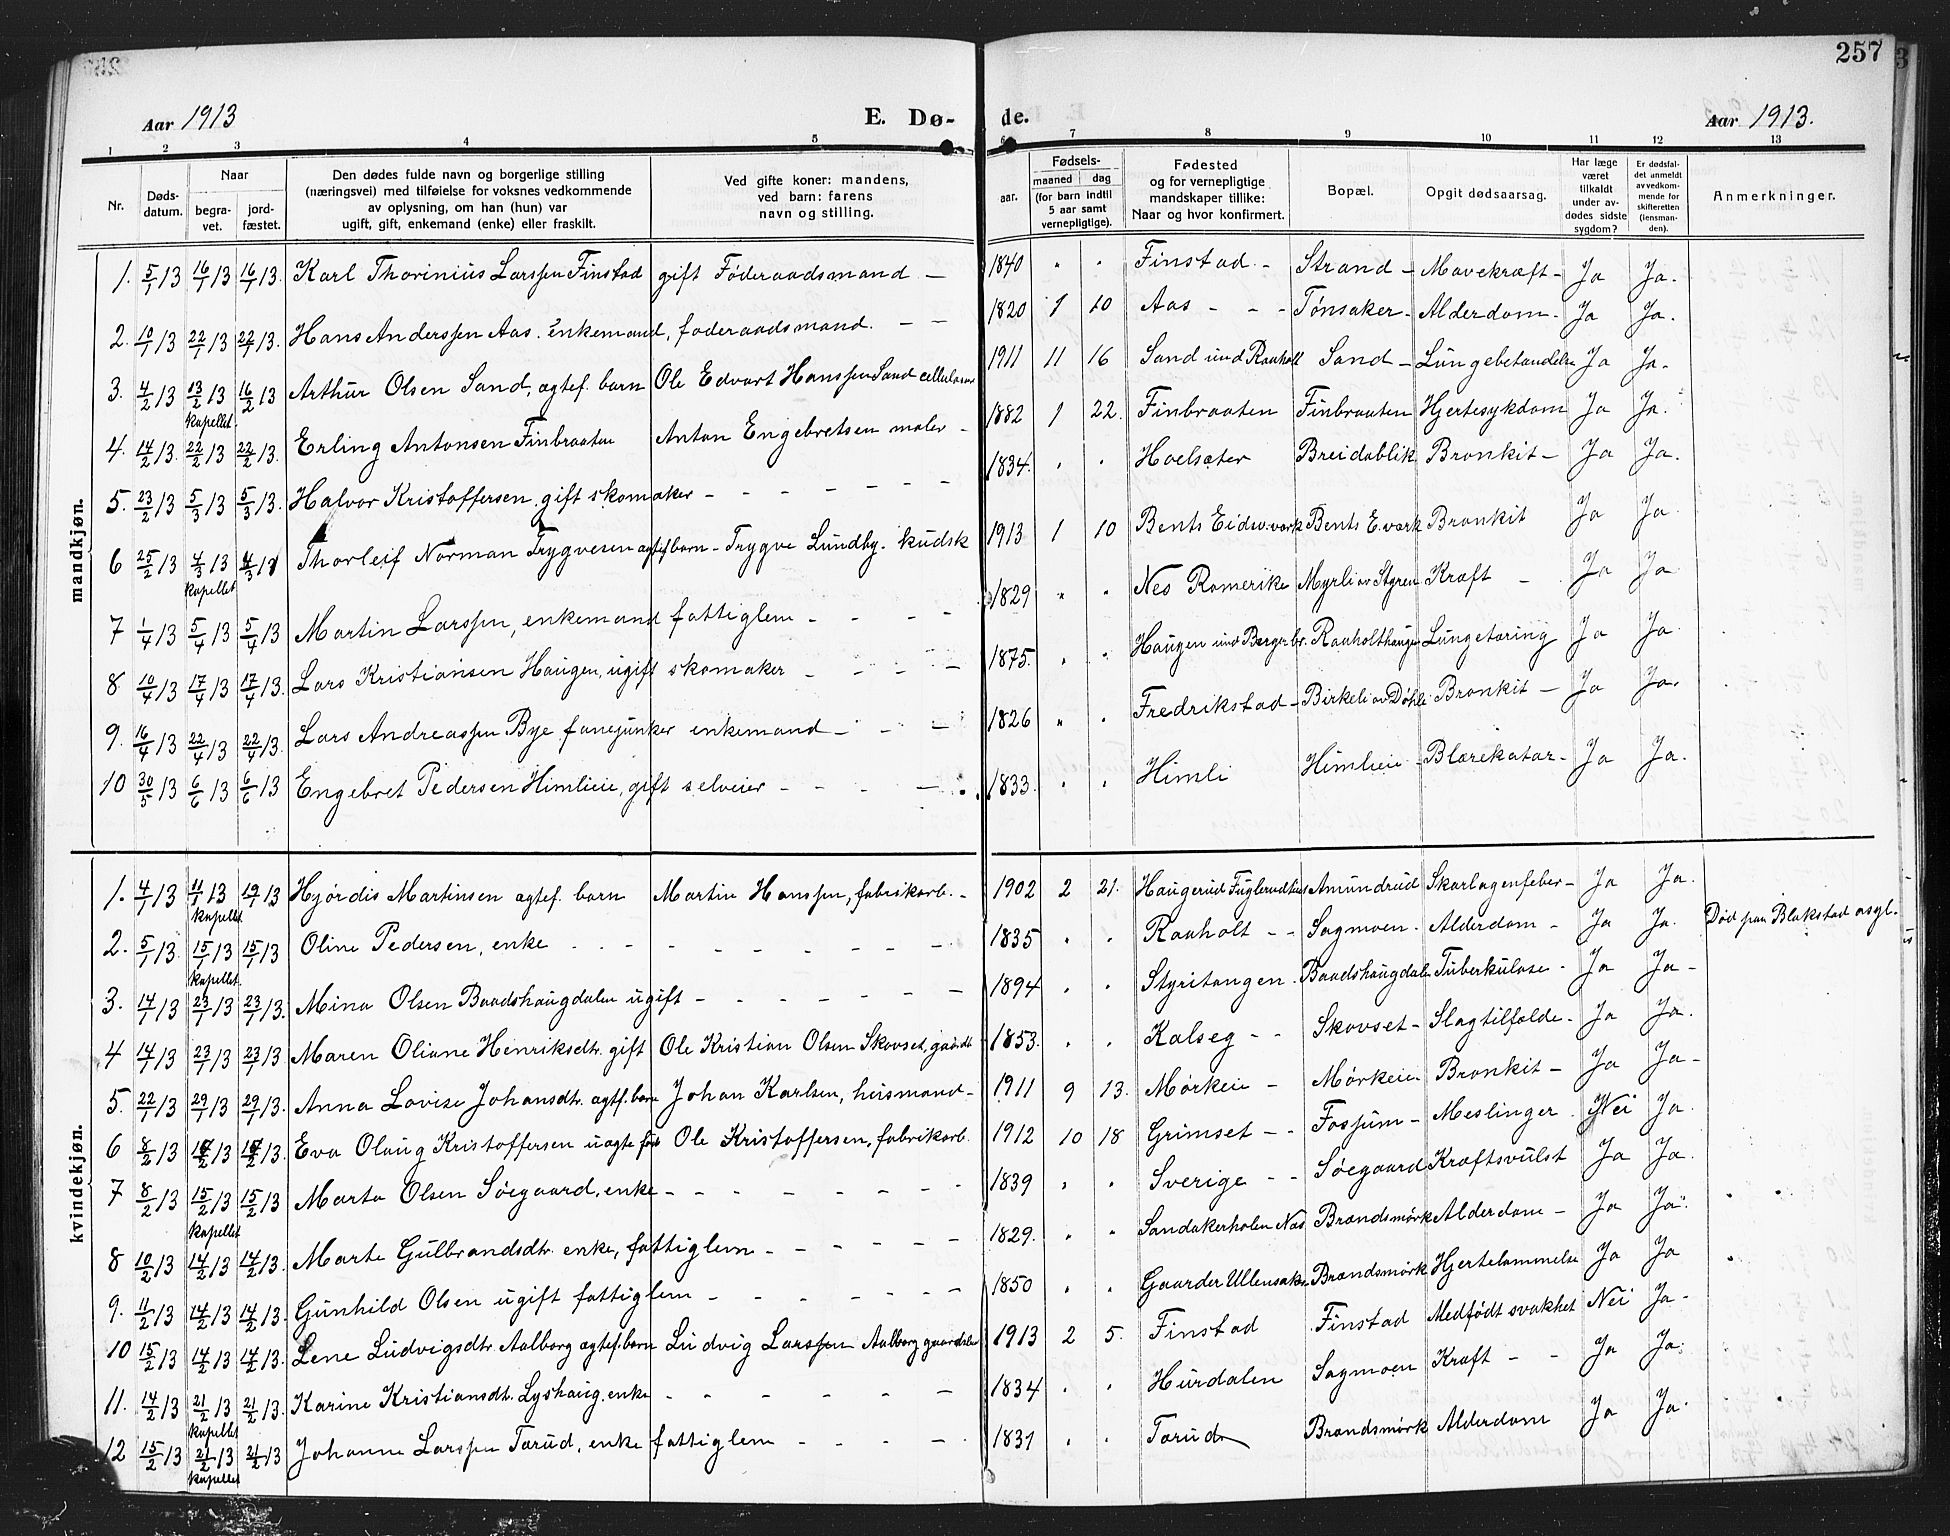 257
Aar 1913 E. Dø- de. Aar 1913.
1 2 3 4 5 6 7 8 9 10 11 12 13
Nr. Døds-datum. Naar begra-vet. jord-fæstet. Den dødes fulde navn og borgerlige stilling (næringsvei) med tilføielse for voksnes vedkommende av oplysning, om han (hun) var ugift, gift, enkemand (enke) eller fraskilt. Ved gifte koner: mandens, ved barn: farens navn og stilling. Fødsels- aar. maaned dag (for barn indtil 5 aar samt vernepligtige). Fødested og for vernepligtige mandskaper tillike: Naar og hvor konfirmert. Bopæl. Opgit dødsaarsag. Har læge været tilkaldt under av-dødes sidste sygdom? Er dødsfal-det anmeldt av vedkom-mende for skifteretten (lensman-den). Anmerkninger.
mandkjøn.
1. 5/1 13 16/1 13 16/1 13. Karl Thorinius Larssen Finstad gift Føderaadsmand — 1840 " " Finstad - Strand - Mavekræft - Ja Ja.
2. 10/1 13 22/1 13 22/1 13. Hans Anderssen Aas. enkemand, føderaadsmand. — — 1820 1 10 Aas - - - Tønsaker - Alderdom - Ja Ja.
3. 4/2 13 13/2 13 16/2 13 Arthur Olsen Sand, ægtef. barn Ole Edvart Hanssen Sand 1911 11 16 Sand und Raaholt Sand - Lungebetændelse Ja Ja.
kapellet.
4. 14/2 13. 22/2 13 22/2 13. Erling Antonsen Finbraaten Anton Engebretsen maler - 1882 1 22. Finbraaten Finbraaten Hjertesykdom Ja Ja.
5. 23/2 13 5/3 13 5/3 13. Halvor Kristoffersen gift skomaker - - - - - - - 1834. " " Hoelsæter Breidablik Bronkit - Ja Ja.
6 25/2 13 4/3 13 4/3 13 Thorleif Norman Trygvesen ægtef barn - Trygve Lundby. kudsk 1913 1 10 Bents Eidsv. værk Bents E. værk Bronkit Ja Ja.
kapellet
7 1/4 13 5/4 13 5/4 13 Martin Larssen, enkemand fattiglem - - - - 1829 " " Nes Romerike Myrli av Styren Kræft - Ja Ja
8 10/4 13 17/4 13 17/4 13. Lars Kristiansen Haugen, ugift skomaker - - - - 1875. " " Haugen und Bergerbr. Raaholthaugen Lungetæring Ja Ja
9. 16/4 13 22/4 13 22/4 13. Lars Andreassen Bye. fanejunker enkemand - - - - 1826 " " Fredrikstad - Birkeli av Døhli Bronkit - Ja Ja.
10 30/5 13 6/6 13 6/6 13 Engebret Pedersen Himlieie, gift selveier - - - - 1833. " " Himli Himlieie - Blærekatar - Ja Ja.
kvindekjøn.
1. 4/1 13 11/1 13 19/1 13 Hjørdis Martinsen ægtef. barn Martin Hanssen, fabrikarb. - 1902 2 21. Haugerud Amundrud Skarlagenfeber - Ja Ja.
kapellet
2. 5/1 13. 15/1 13 15/1 13 Oline Pedersen, enke - - - - - - - - 1835 " " Raaholt - - Sagmoen. Alderdom - Ja Ja. Død paa Blakstad asyl.
kapellet.
3. 14/1 13 23/1 13 23/1 13. Mina Olsen Baadshaugdalen ugift - - - - - - 1894 " " Styritangen. Baadshaugdalen Tuberkulose - Ja Ja -
4 14/1 13 23/1 13 23/1 13. Maren Oliane Henriksdtr. gift Ole Kristian Olsen Skovset, gaardb 1853. " " Kalseg - - Skovset - Slagtilfælde - Ja Ja.
5. 22/1 13 29/1 13 29/1 13. Anna Lovise Johansdtr. ægtf. barn Johan Karlsen, husmand - 1911 9 13. Mørkeie - Mørkeie Bronkit - Ja Ja -
6 8/2 13 /2 13 /2 13. Eva Olaug Kristoffersen uægte født Ole Kristoffersen, fabrikarb. 1912 10 18 Grimset - - Fossum - Meslinger - Nei Ja.
7 8/2 13 15/2 13 15/2 13 Marta Olsen Søegaard. enke - - - - - - - 1839 " " Sverige - - Søegaard Kræftsvulst Ja Ja.
kapellet
8 10/2 13 14/2 13 14/2 13. Marte Gulbrandsdtr. enke, fattiglem - - - - - - 1829. " " Sandakerholen Nas Brændsmørk Alderdom - Ja Ja.
9. 11/2 13 14/2 13 14/2 13. Gunhild Olsen ugift fattiglem - - - - - - 1850 " " Gaarder Ullensaker Brændsmørk Hjertelammelse Ja Ja
10 15/2 13 14/2 13 14/2 13. Lene Ludvigsdtr. Aalborg ægtef. barn Ludvig Larssen Aalborg 1913 2 5. Finstad Finstad Medfødt svakhet Nei Ja -
11. 14/2 13 21/2 13 21/2 13. Karine Kristiansdt. Lyshaug. enke - - - - - - 1834 " " Hurdalen Sagmoen Kræft - - Ja Ja.
kapellet
12 15/2 13 21/2 13 21/2 13 Johanne Larssen Tærud, enke fattiglem - - - - 1831 " " Tærud Brændsmørk Alderdom Ja Ja.
kapellet